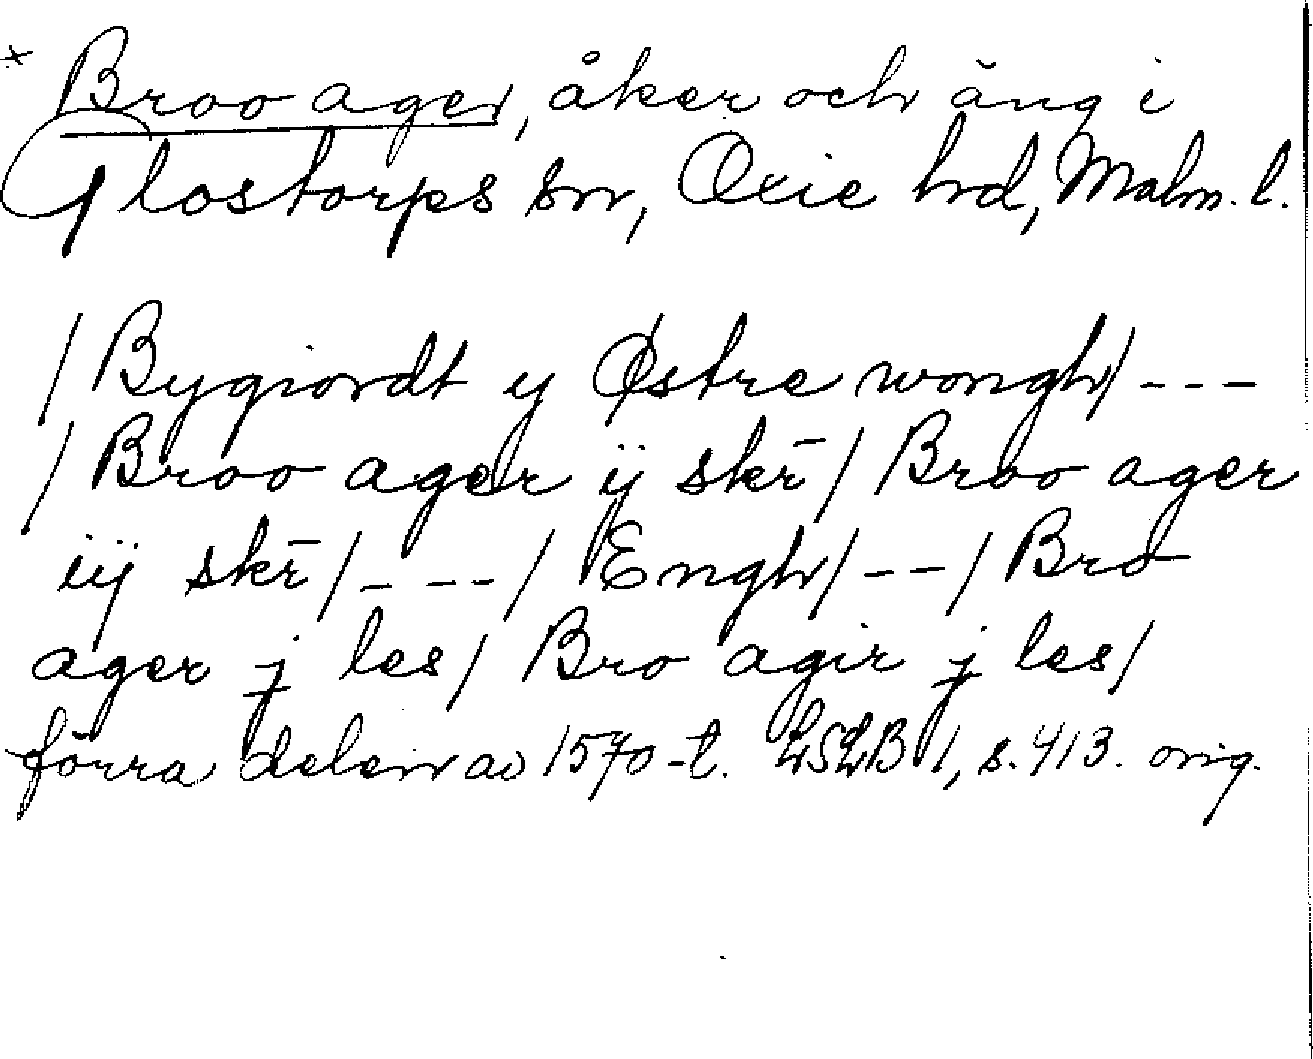 × Broo ager, åker och äng i
Glostorps sn, Oxie hd, Malm. l.
/ Bygiordt y Østre wongh / - - -
/ Broo ager ij skr̄ / Broo ager
iij skr̄ / - - - / Engh / - - / Bro
ager j les / Bro agir j les /
förra delen av 1570-t. LSLB 1, s. 413. orig.